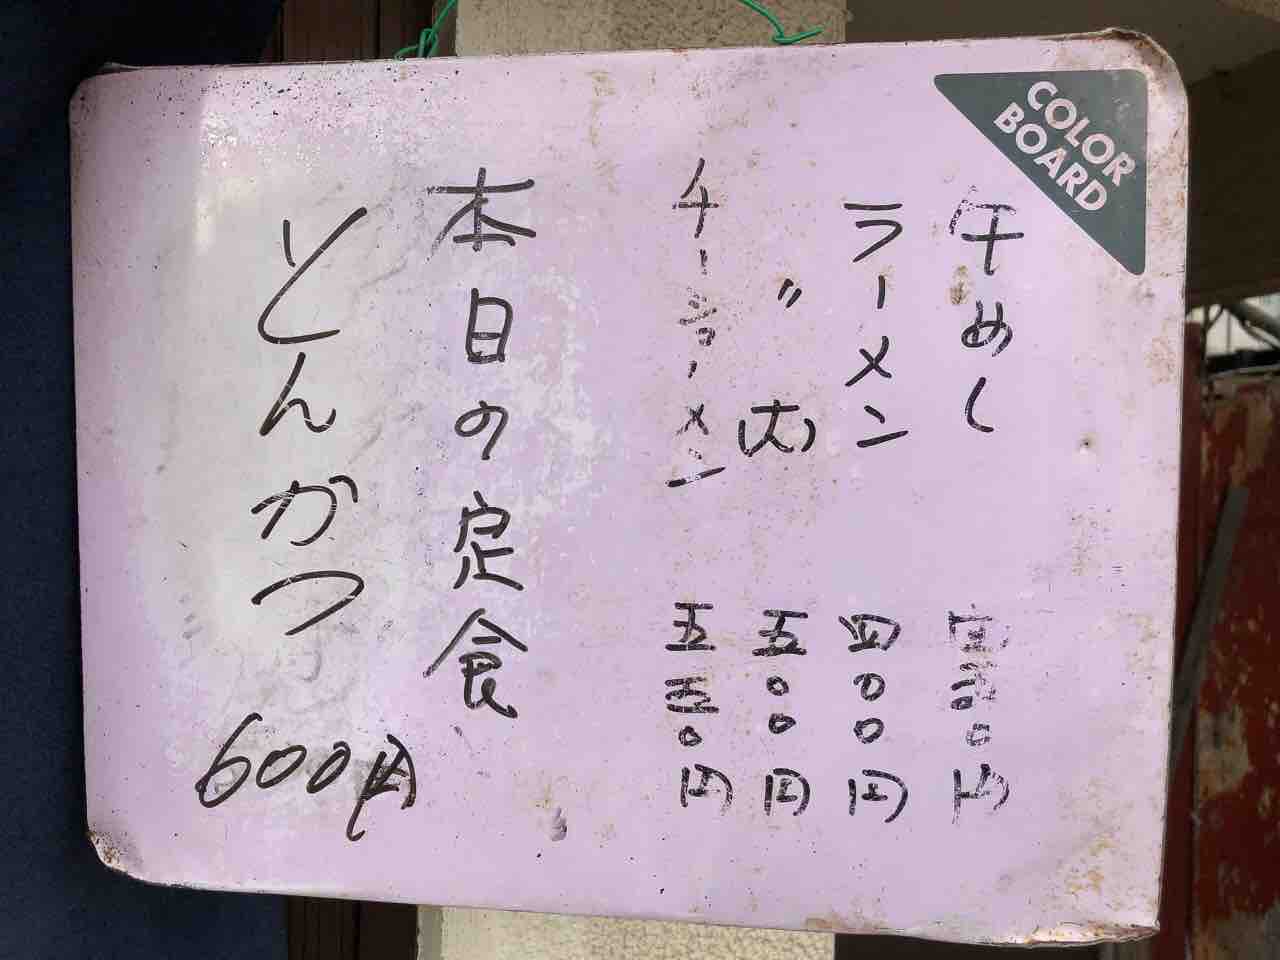 COLOR
BOARD
牛めし 円
ラーメン 四〇〇円
〃 (大) 五〇〇円
チーシューメン 五五〇円
本日の定食
とんかつ
600円